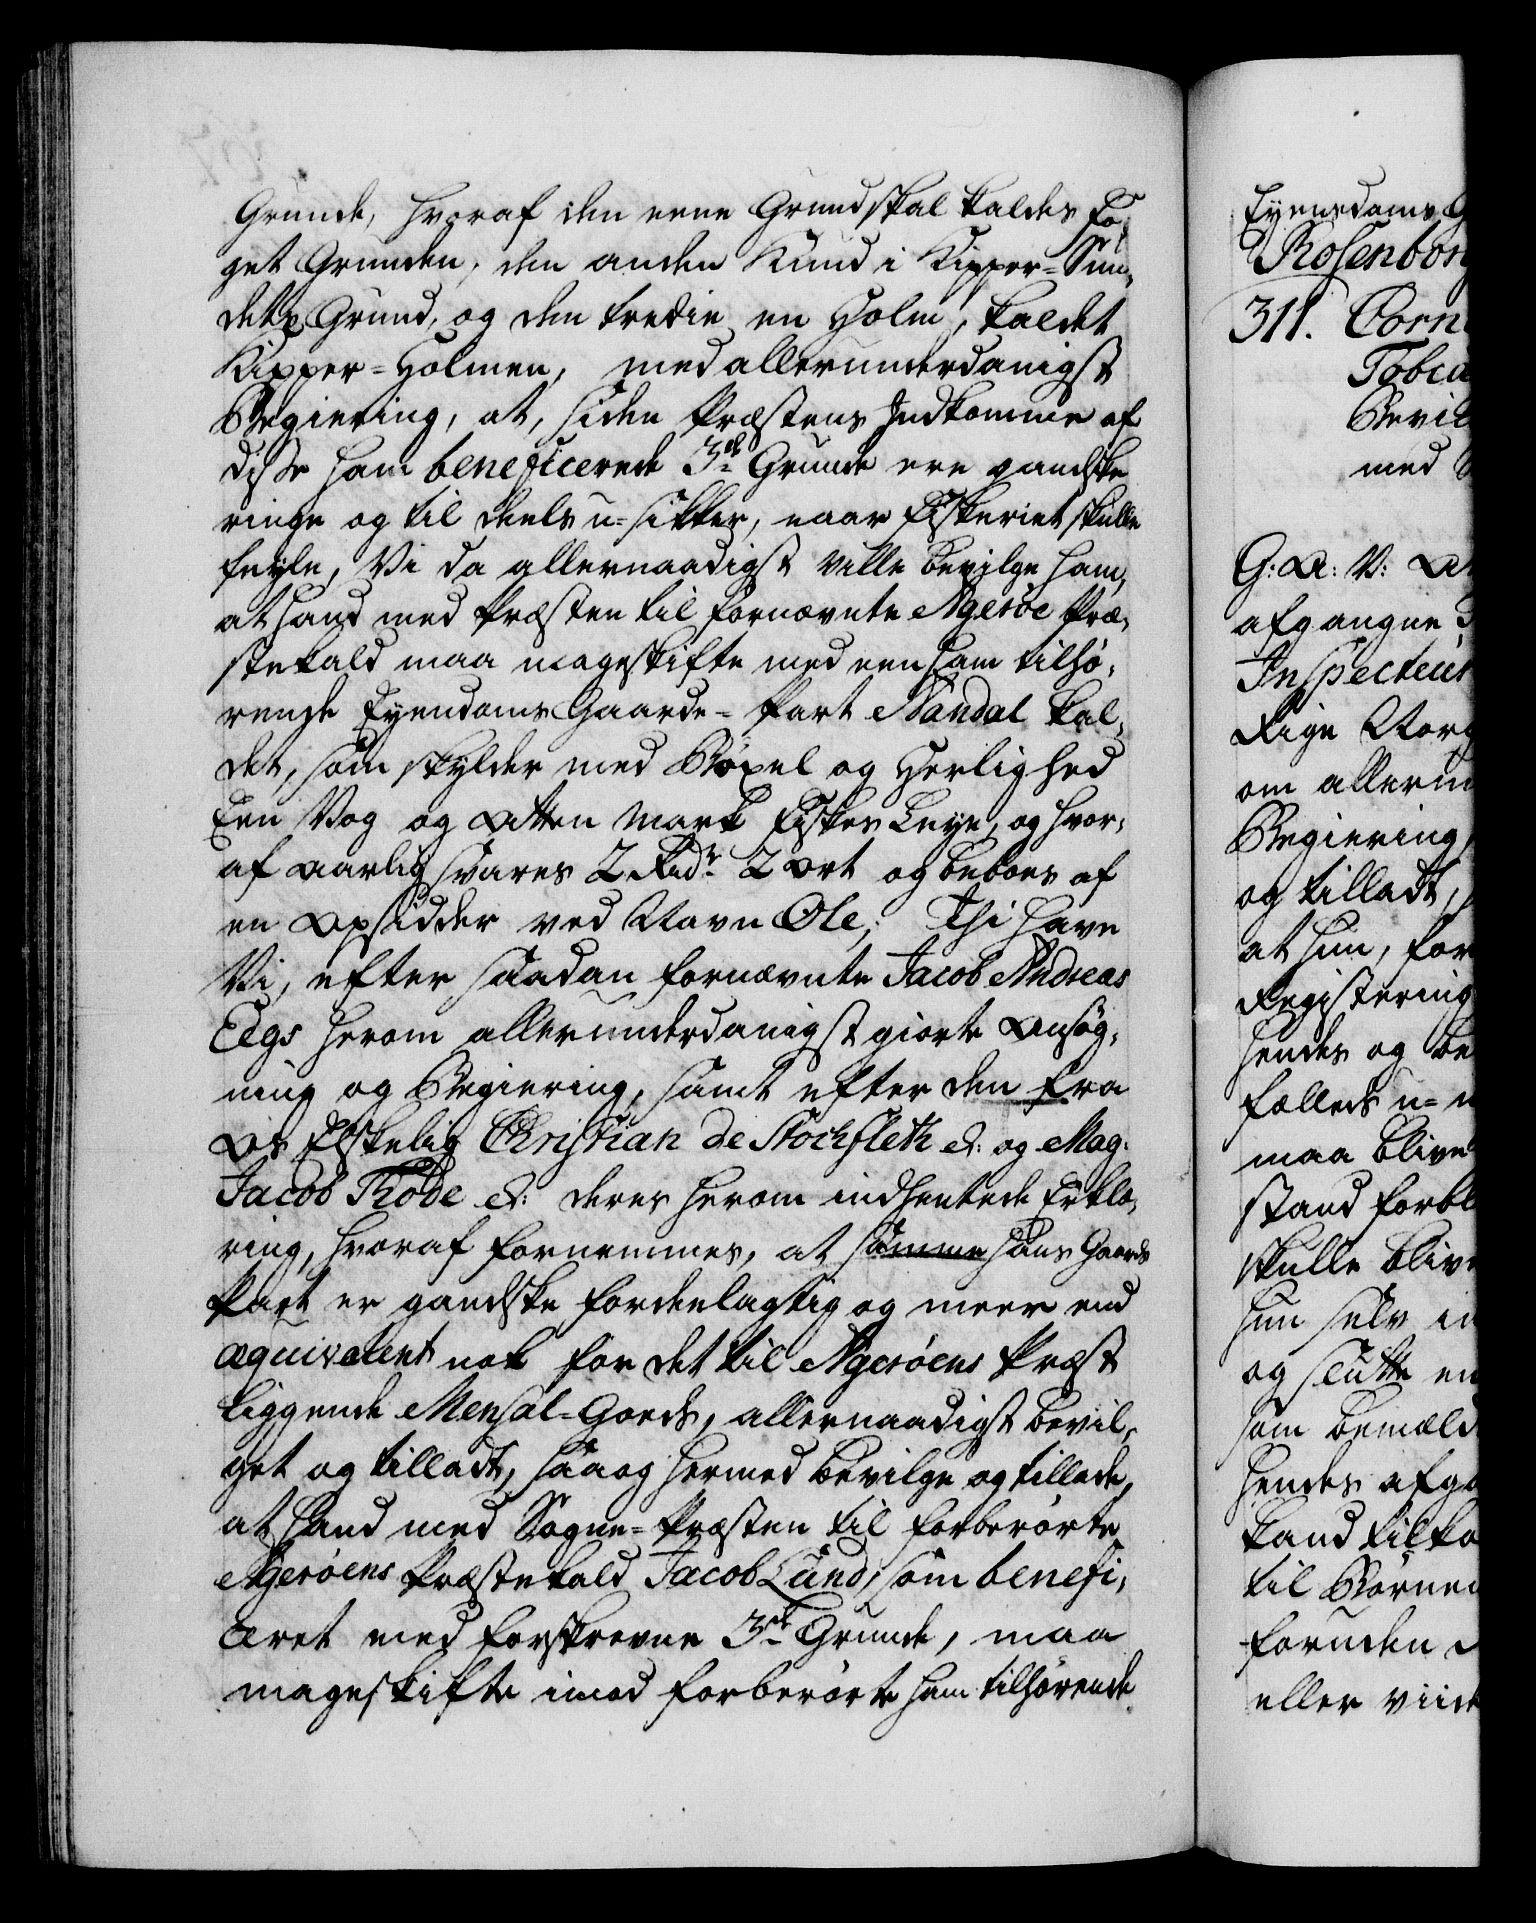 Grunde, hvoraf den eene Grund skal kaldes Fo-
get Grunden, den anden Kund i Kipper-Sun-
dets Grund, og den tredie en Holm, kaldet
Kipper-Holmen, med allerunderdanigst
Begiering, at, siden Præstens Indkomme af
disse ham beneficerede 3de Grunde ere gandske
ringe og til deels u-sikker, naar Fiskeriet skulle
feyle, Vi da allernaadigst ville bevilge ham,
at hand med Præsten til fornævnte Agerøe Præ-
stekald maa mageskifte med een ham tilhø-
rende Eyendoms Gaarde-Part Nandal kal-
det, som skylder med Bøxel og Herlighed
Een Vog og Atten Mark Fiskes Leye, og hvor-
af aarlig svares 2 Rdr. 2 Ort og beboes af
en Opsidder ved Navn Ole; Thi have
Vi, efter saadan fornævnte Jacob Andreas
Eegs herom allerunderdanigst giorte Ansøg-
ning og Begiering, samt efter den fra
Os Elskelig Christian de Stochfleth &: og Mag:
Jacob Rode &: deres herom indhentede Erklæ-
ring, hvoraf fornemmes, at samme hans Gaards
Part er gandske fordeelagtig og meer end
æquivalent nok for det til Agerøens Præst
liggende Mensal-Goeds, allernaadigst bevil-
get og tilladt, saa og hermed bevilge og tillade,
at hand med Sogne-Præsten til forberørte
Agerøens Præstekald Jacob Lund, som benefi-
ceret med forskrevne 3de Grunde, maa
mageskifte imod forberørte ham tilhørende
Eyendoms G
Rosenborg
311. Corn
Tobia
Bevil
med
G: A: V: At
afgangne
Inspecteur
Rige Norg
om allerun
Begiering,
og tilladt,
at hun, for
Registering
hendes og be
fælleds u-m
maa blive
stand forbl
skulle blive
hun selv in
og slutte en
som bemeld
hendes afga
kand tilko
til Børnen
foruden
eller viid